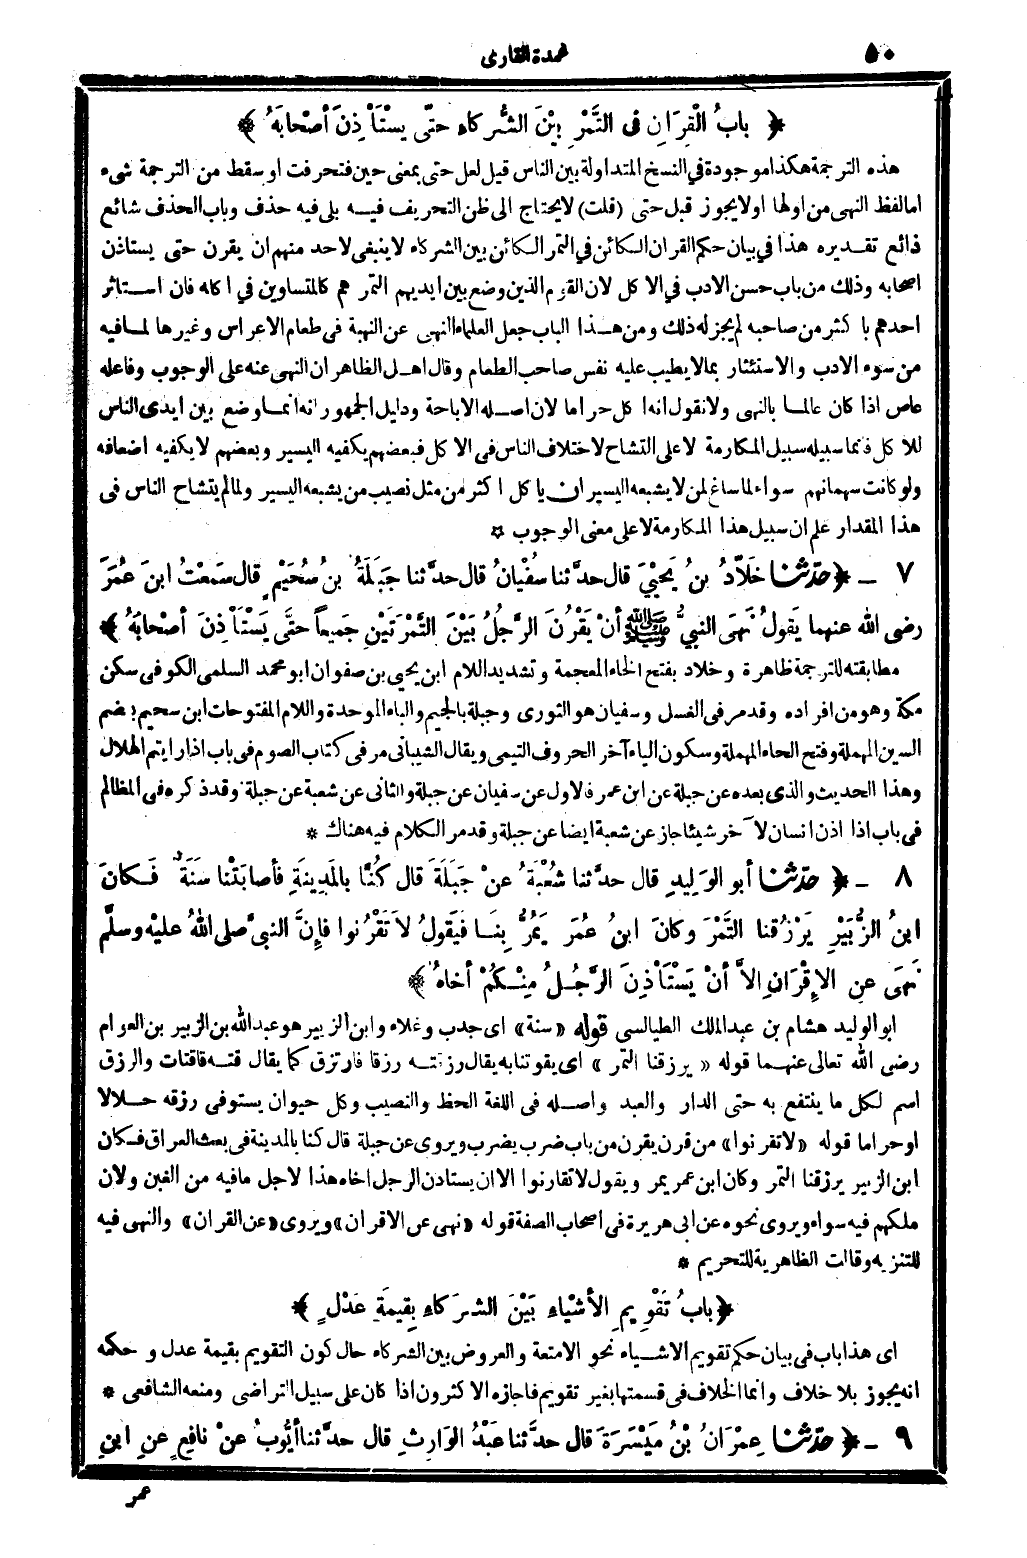 ٥٠
عمدة القارى
﴿ بابُ الْقِرَانِ فِى التَّمْرِ بَيْنَ الشُّرَكاءِ حتَّى يسْتَأْذِنَ أصْحابَهُ ﴾
هذه الترجمة هكذا موجودة في النسخ المتداولة بين الناس قيل لعل حتى بمعنى حين فتحرفت او سقط من الترجمة شىء
اما لفظ النهى من اولها او لا يجوز قبل حتى (قلت) لا يحتاج الى ظن التحريف فيه بلى فيه حذف وباب الحذف شائع
ذائع تقديره هذا في بيان حكم القران الكائن في التمر الكائن بين الشركاء لا ينبغى لاحد منهم ان يقرن حتى يستاذن
اصحابه وذلك من باب حسن الادب في الاكل لان القوم الذين وضع بين ايديهم التمر هم كالمتساوين في اكله فان استاثر
احدهم باكثر من صاحبه لم يجز له ذلك ومن هذا الباب جعل العلماء النهى عن النهبة فى طعام الاعراس وغيرها لما فيه
من سوء الادب والاستئثار بما لا يطيب عليه نفس صاحب الطعام وقال اهل الظاهر ان النهى عنه على الوجوب وفاعله
عاص اذا كان عالما بالنهى ولا نقول انه اكل حراما لان اصله الاباحة ودليل الجمهور انه انما وضع بين ايدى الناس
للاكل فانما سبيله سبيل المكارمة لا على التشاح لاختلاف الناس فى الاكل فبعضهم يكفيه اليسير وبعضهم لا يكفيه اضعافه
ولو كانت سهمانهم سواء لما ساغ لمن لا يشبعه اليسير ان ياكل اكثر من مثل نصيب من يشبعه اليسير ولما لم يتشاح الناس فى
هذا المقدار علم ان سبيل هذا المكارمة لا على معنى الوجوب *
٧ ـ ﴿ حدّثنا خَلَّادُ بنُ يَحْيىَ قال حدَّثنا سُفْيانُ قال حدَّثنا جَبَلَةُ بنُ سُحَيْمٍ قال سَمِعْتُ ابنَ عُمَرَ
رضى الله عنهما يَقولُ نَهَى النبيُّ ﷺ أنْ يَقْرُنَ الرَّجُلُ بَيْنَ التَّمْرَتَيْنِ جَمِيعاً حتَّى يَسْتَأْذِنَ أصْحابَهُ ﴾
مطابقته للترجمة ظاهرة وخلاد بفتح الخاء المعجمة وتشديد اللام ابن يحيى بن صفوان ابو محمد السلمى الكوفى سكن
مكة وهو من افراده وقد مر فى الغسل وسفيان هو الثورى وجبلة بالجيم والباء الموحدة واللام المفتوحات ابن سحيم بضم
السين المهملة وفتح الحاء المهملة وسكون الياء آخر الحروف التيمى ويقال الشيبانى مر فى كتاب الصوم فى باب اذا رايتم الهلال
وهذا الحديث والذى بعده عن جبلة عن ابن عمر فالاول عن سفيان عن جبلة والثانى عن شعبة عن جبلة وقد ذكره فى المظالم
فى باب اذا اذن انسان لآخر شيئا جاز عن شعبة ايضا عن جبلة وقد مر الكلام فيه هناك *
٨ ـ ﴿ حدّثنا أبو الوَلِيدِ قال حدَّثنا شُعْبَةُ عنْ جَبَلَةَ قال كُنَّا بالمَدِينَةِ فأصابَتْنا سَنَةٌ فَكانَ
ابنُ الزُّبَيْرِ يَرْزُقنا التَّمْرَ وكانَ ابنُ عُمَرَ يَمُرُّ بِنَا فيَقولُ لا تَقْرُنوا فإِنَّ النبيَّ صلى اللهُ عليْه وسلَّم
نَهَى عنِ الإقْرَانِ إلاَّ أنْ يَسْتَأْذِنَ الرَّجُلُ مِنْكُمْ أخاهُ ﴾
ابو الوليد هشام بن عبد الملك الطيالسى قوله «سنة» اى جدب وغلاء وابن الزبير هو عبد الله بن الزبير بن العوام
رضى الله تعالى عنهما قوله «يرزقنا التمر» اى يقوتنا به يقال رزقته رزقا فارتزق كما يقال قته فاقتات والرزق
اسم لكل ما ينتفع به حتى الدار والعبد واصله فى اللغة الحظ والنصيب وكل حيوان يستوفى رزقه حلالا
او حراما قوله «لا تقرنوا» من قرن يقرن من باب ضرب يضرب ويروى عن جبلة قال كنا بالمدينة فى بعث العراق فكان
ابن الزبير يرزقنا التمر وكان ابن عمر يمر ويقول لا تقارنوا الا ان يستاذن الرجل اخاه هذا لاجل ما فيه من الغبن ولان
ملكهم فيه سواء ويروى نحوه عن ابى هريرة فى اصحاب الصفة قوله «نهى عن الاقران» ويروى «عن القران» والنهى فيه
للتنزيه وقالت الظاهرية للتحريم *
﴿ بابُ تَقْوِيمِ الأشْياءِ بَيْنَ الشُّرَكاءِ بِقِيمَةِ عَدْلٍ ﴾
اى هذا باب فى بيان حكم تقويم الاشياء نحو الامتعة والعروض بين الشركاء حال كون التقويم بقيمة عدل وحكمه
انه يجوز بلا خلاف وانما الخلاف فى قسمتها بغير تقويم فاجازه الاكثرون اذا كان على سبيل التراضى ومنعه الشافعى *
٩ ـ ﴿ حدّثنا عِمْرَانُ بْنُ مَيْسَرَةَ قال حدَّثنا عَبْدُ الوَارِثِ قال حدَّثنا أيُّوبُ عنْ نافِعٍ عنِ ابنِ
عمر